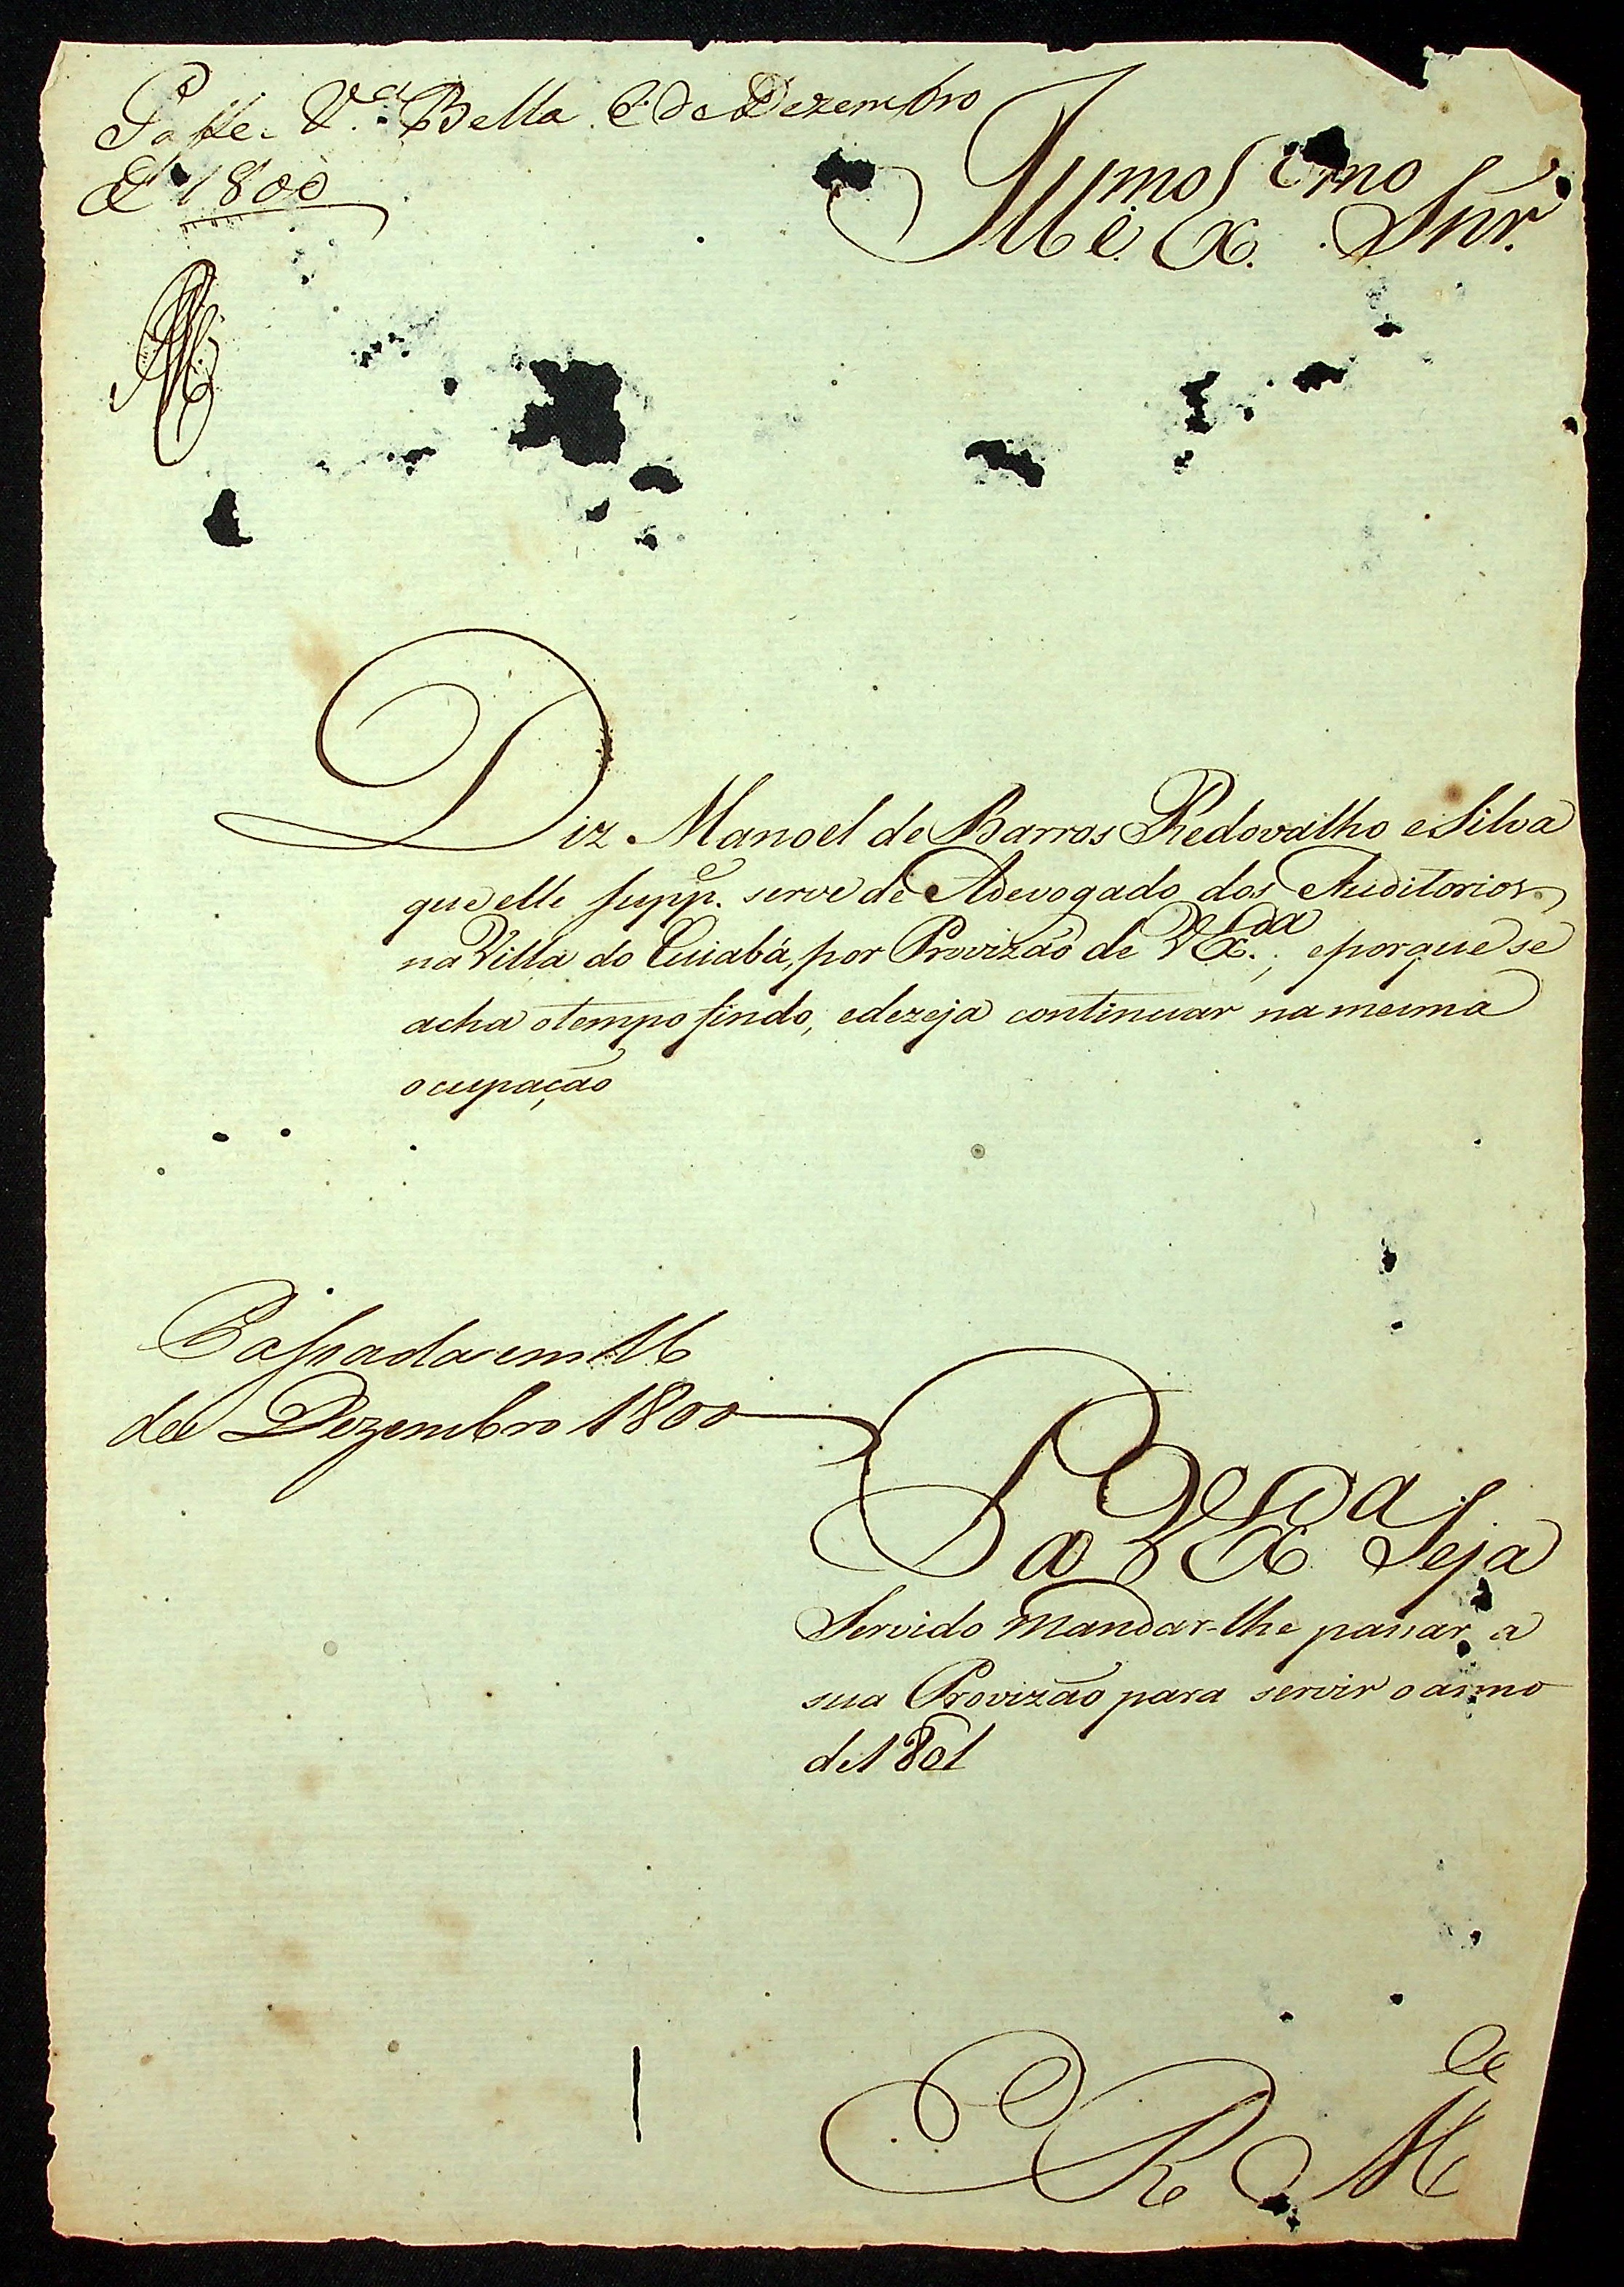 Passe. V.ª Bella. 6 de Dezembro
de 1800
Illmo. e Exmo. Snr.
Diz Manoel de Barros Redovalho e Silva
que elle supp.e serve de Adevogado dos Auditorios
na Villa do Cuiabá, por Provizão de V Ex.cia; e porque se
acha o tempo findo, e dezeja continuar na mesma
ocupação
Passada em 16
de Dezembro 1800
P. a V Ex.cia Seja
Servido Mandar-lhe passar a
sua Provizão para servir o anno
de 1801
E R M.ce